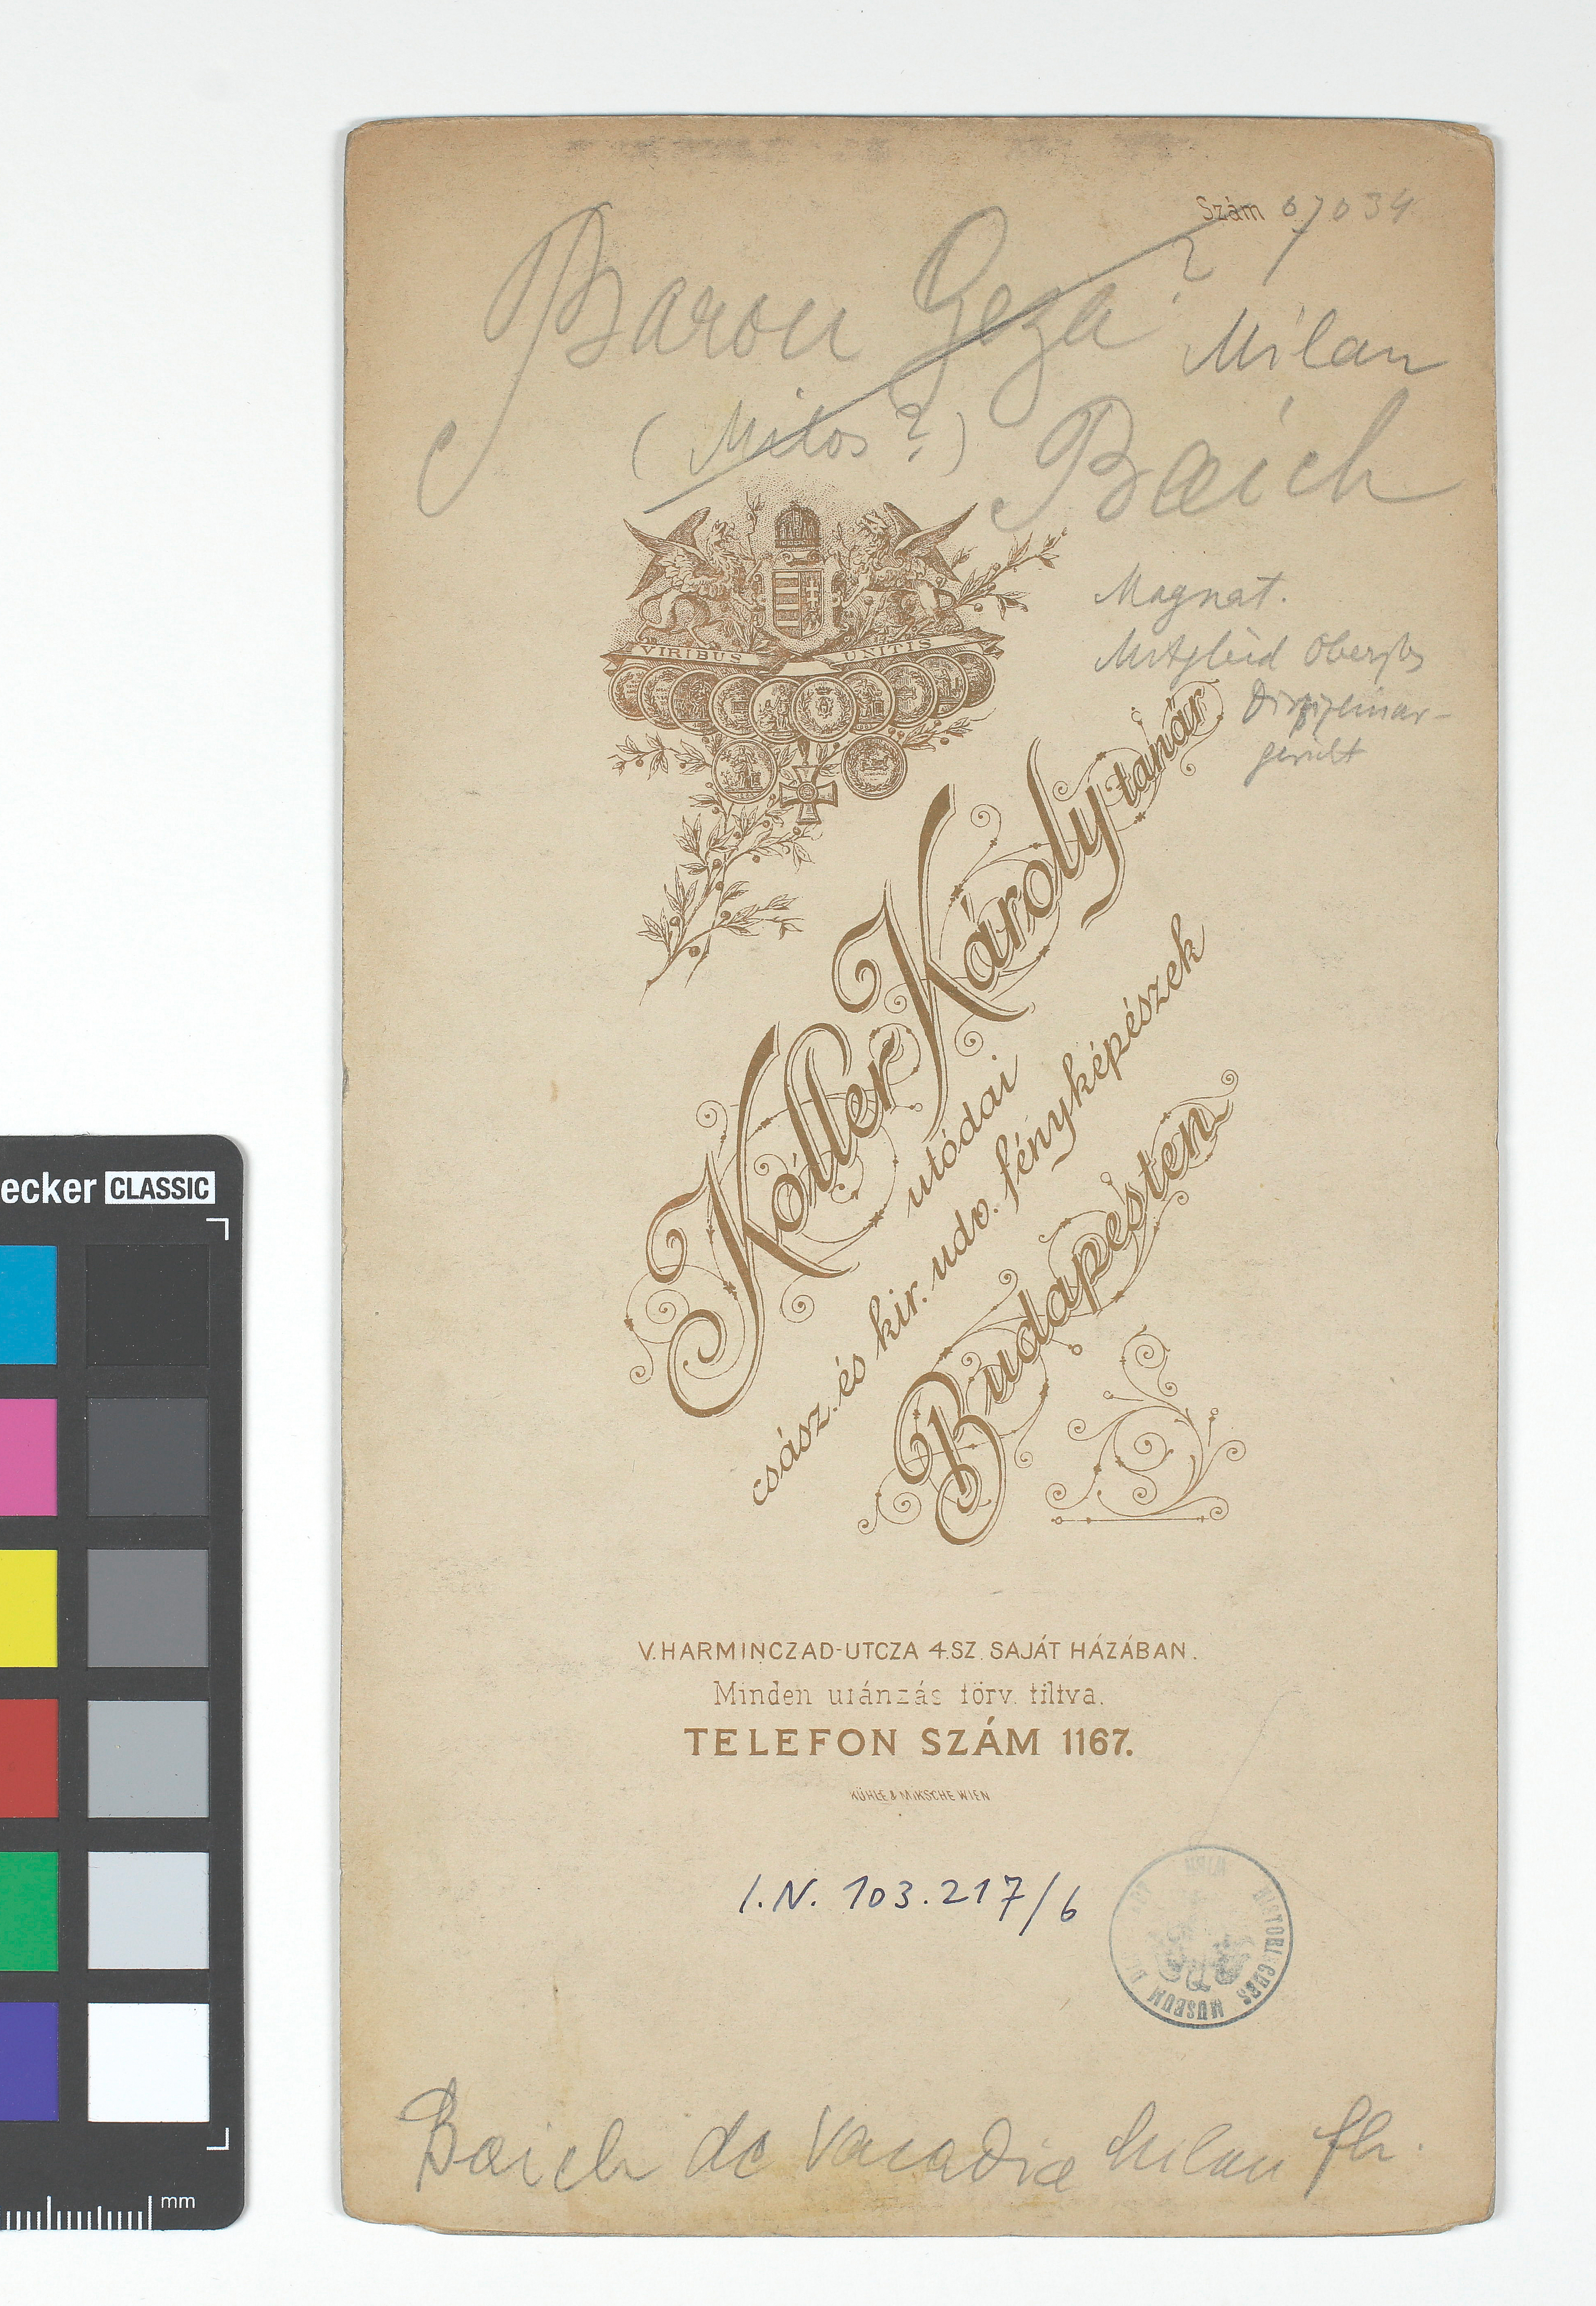 Szám 07034
Baron Geza? Milan
(Milos?) Baich
Magnat.
VIRIBUS UNITIS
Mitglied Oberstes
Disziplinar-
gericht
Koller Károly tanár
utódai
csász. és kir. udv. fényképészek
Budapesten
V. HARMINCZAD-UTCZA 4.SZ. SAJÁT HÁZÁBAN.
Minden utánzás törv. tiltva.
TELEFON SZÁM 1167.
KÜHLE & MIKSCHE WIEN
I.N. 103.217/6
HISTORISCHES MUSEUM
Baich de Varadia Milan fh.
ecker CLASSIC
mm